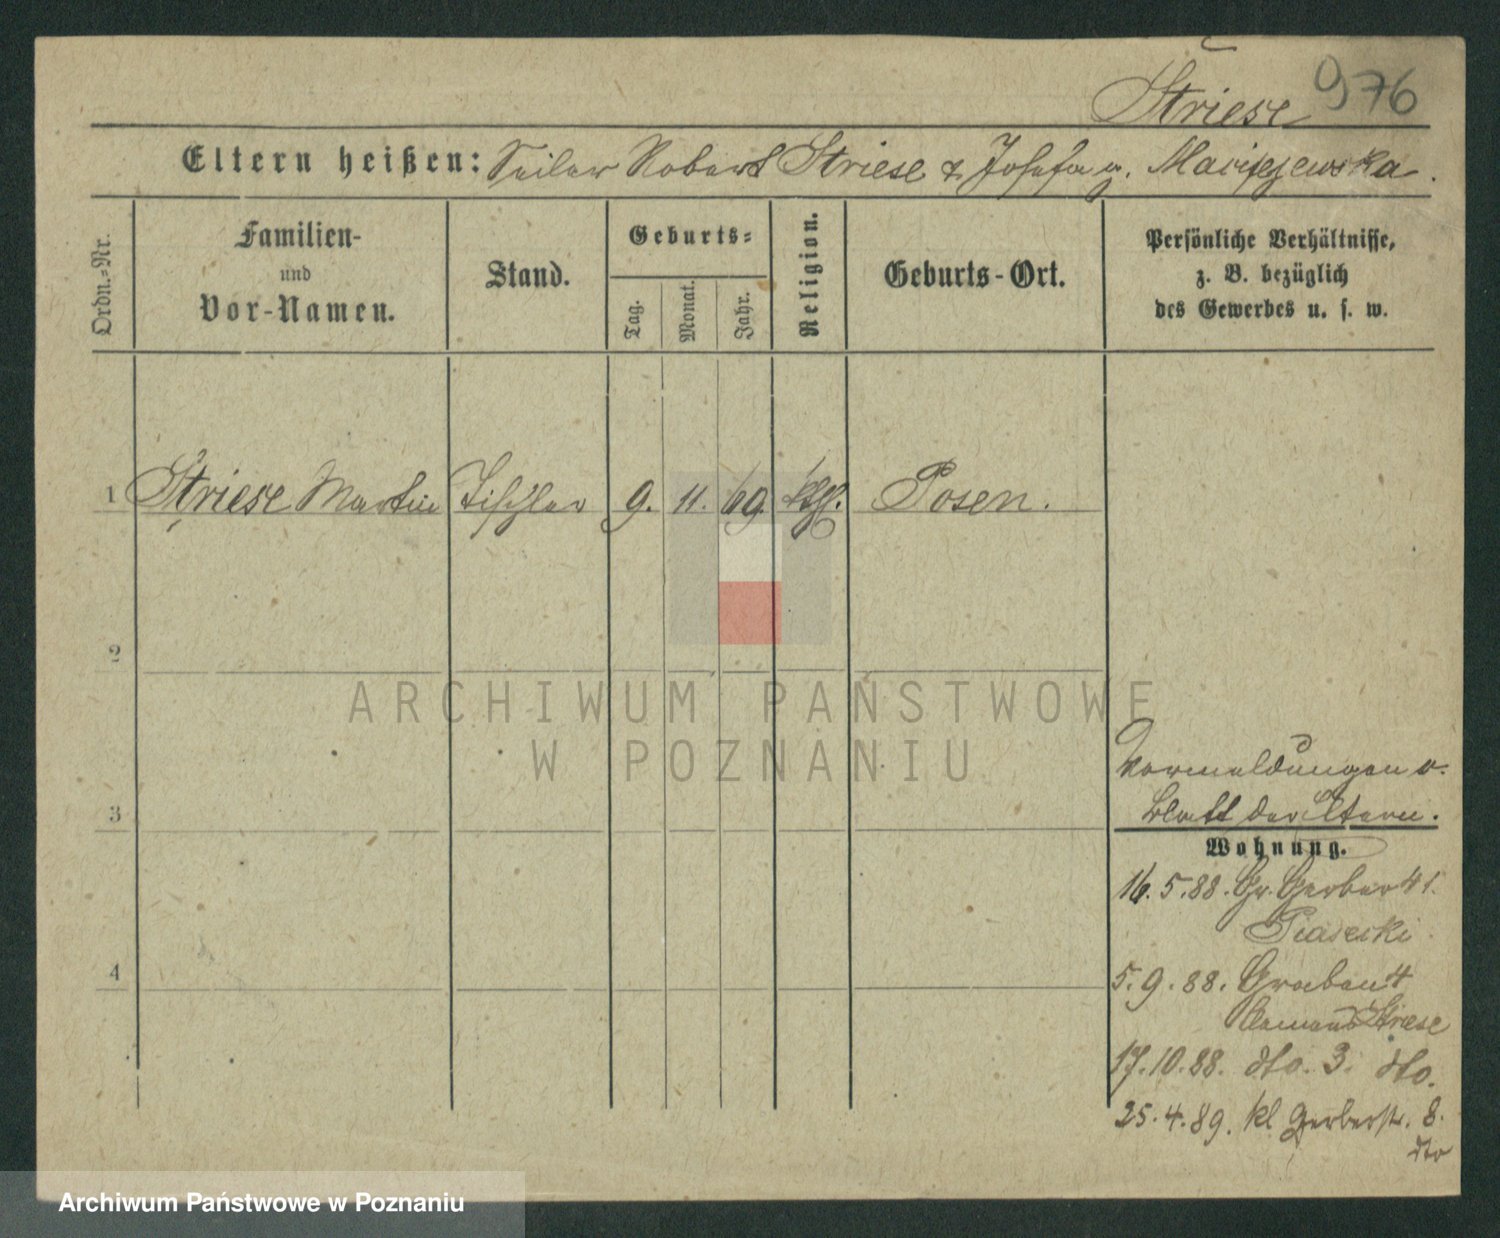 Striese 976
Eltern heißen: Seiler Robert Striese & Josefa g. Maciejewska.
Ordn.-Nr.
Familien-
und
Vor-Namen.
Stand.
Geburts-
Tag.
Monat.
Jahr.
Religion.
Geburts-Ort.
Persönliche Verhältnisse,
z. B. bezüglich
des Gewerbes u. s. w.
1 Striese Martin Tischler 9. 11. 69. kth. Posen.
2
3
4
Vormeldungen v.
Blatt der Eltern.
Wohnung.
16. 5. 88. Gr. Gerber 41.
Piasecki
5. 9. 88. Graben 4
Striese
17. 10. 88. dto. 3. dto.
25. 4. 89. kl. Gerberstr. 8.
dto
ARCHIWUM PAŃSTWOWE
W POZNANIU
Archiwum Państwowe w Poznaniu